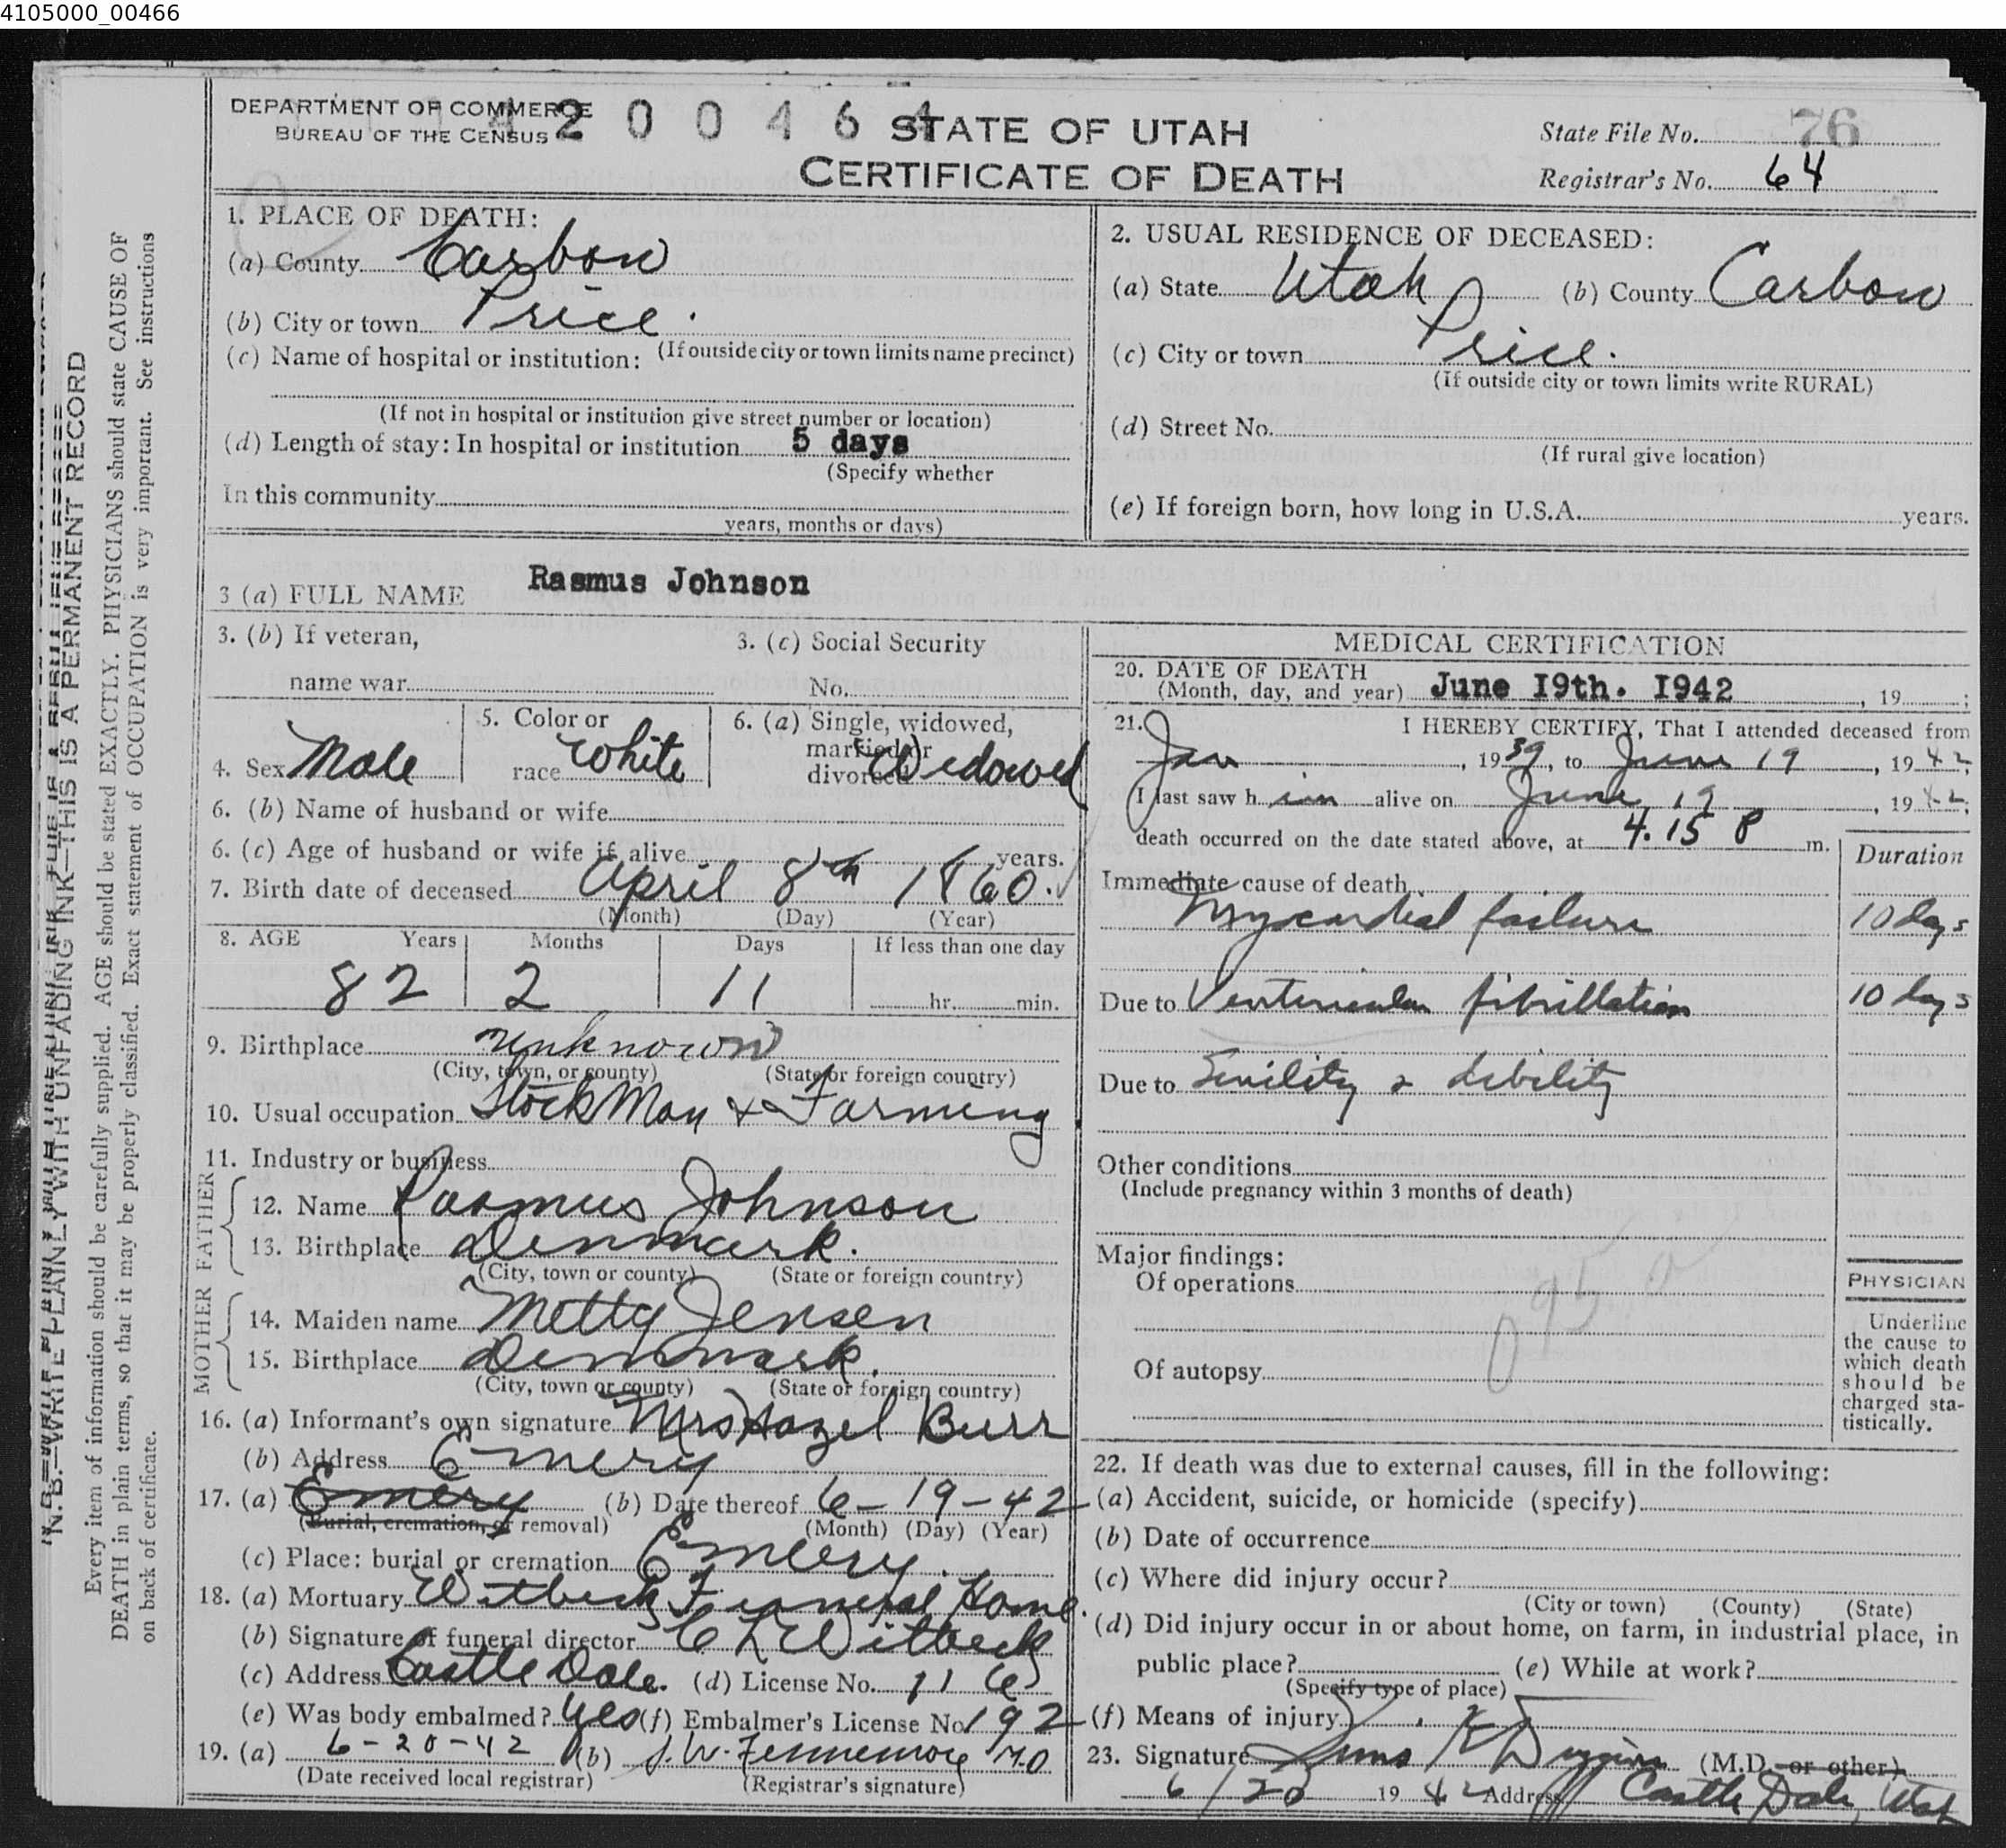 4105000_00466
DEPARTMENT OF COMMERCE
BUREAU OF THE CENSUS
4 2 0 0 4 6 4
STATE OF UTAH
CERTIFICATE OF DEATH
State File No. 76
Registrar's No. 64
1. PLACE OF DEATH:
(a) County Carbon
(b) City or town Price.
(If outside city or town limits name precinct)
(c) Name of hospital or institution:
(If not in hospital or institution give street number or location)
(d) Length of stay: In hospital or institution 5 days
(Specify whether
In this community
years, months or days)
2. USUAL RESIDENCE OF DECEASED:
(a) State Utah (b) County Carbon
(c) City or town Price.
(If outside city or town limits write RURAL)
(d) Street No.
(If rural give location)
(e) If foreign born, how long in U.S.A. years.
3 (a) FULL NAME Rasmus Johnson
3. (b) If veteran,
name war
3. (c) Social Security
No.
4. Sex Male
5. Color or
race White
6. (a) Single, widowed,
married or
divorced Widowed
6. (b) Name of husband or wife
6. (c) Age of husband or wife if alive years.
7. Birth date of deceased April 8th 1860.
(Month) (Day) (Year)
8. AGE Years Months Days If less than one day
82 2 11 hr. min.
9. Birthplace unknown
(City, town, or county) (State or foreign country)
10. Usual occupation Stock Man & Farming
11. Industry or business
FATHER
12. Name Rasmus Johnson
13. Birthplace Denmark.
(City, town or county) (State or foreign country)
MOTHER
14. Maiden name Metty Jensen
15. Birthplace Denmark.
(City, town or county) (State or foreign country)
16. (a) Informant's own signature Mrs Hazel Burr
(b) Address Emery
17. (a) Emery (b) Date thereof 6-19-42
(Burial, cremation, or removal) (Month) (Day) (Year)
(c) Place: burial or cremation Emery.
18. (a) Mortuary Witbecks Funeral Home.
(b) Signature of funeral director C L Witbeck
(c) Address Castle Dale. (d) License No. 116
(e) Was body embalmed? Yes (f) Embalmer's License No 192
19. (a) 6-20-42 (b) J. W. Fennemore MD
(Date received local registrar) (Registrar's signature)
MEDICAL CERTIFICATION
20. DATE OF DEATH
(Month, day, and year) June 19th. 1942, 19 ;
21. I HEREBY CERTIFY, That I attended deceased from
Jan, 1939, to June 19, 1942,
I last saw him alive on June, 19, 1942;
death occurred on the date stated above, at 4.15 P m.
Duration
Immediate cause of death
Myocardial failure 10 days
Due to Ventricular fibrillation 10 days
Due to Senility & debility
Other conditions
(Include pregnancy within 3 months of death)
Major findings:
Of operations
Of autopsy
PHYSICIAN
Underline
the cause to
which death
should be
charged sta-
tistically.
22. If death was due to external causes, fill in the following:
(a) Accident, suicide, or homicide (specify)
(b) Date of occurrence
(c) Where did injury occur?
(City or town) (County) (State)
(d) Did injury occur in or about home, on farm, in industrial place, in
public place? (e) While at work?
(Specify type of place)
(f) Means of injury
23. Signature (M.D. or other)
6/20 1942 Address Castle Dale, Utah
N. B.—WRITE PLAINLY WITH UNFADING INK—THIS IS A PERMANENT RECORD
Every item of information should be carefully supplied. AGE should be stated EXACTLY. PHYSICIANS should state CAUSE OF
DEATH in plain terms, so that it may be properly classified. Exact statement of OCCUPATION is very important. See instructions
on back of certificate.